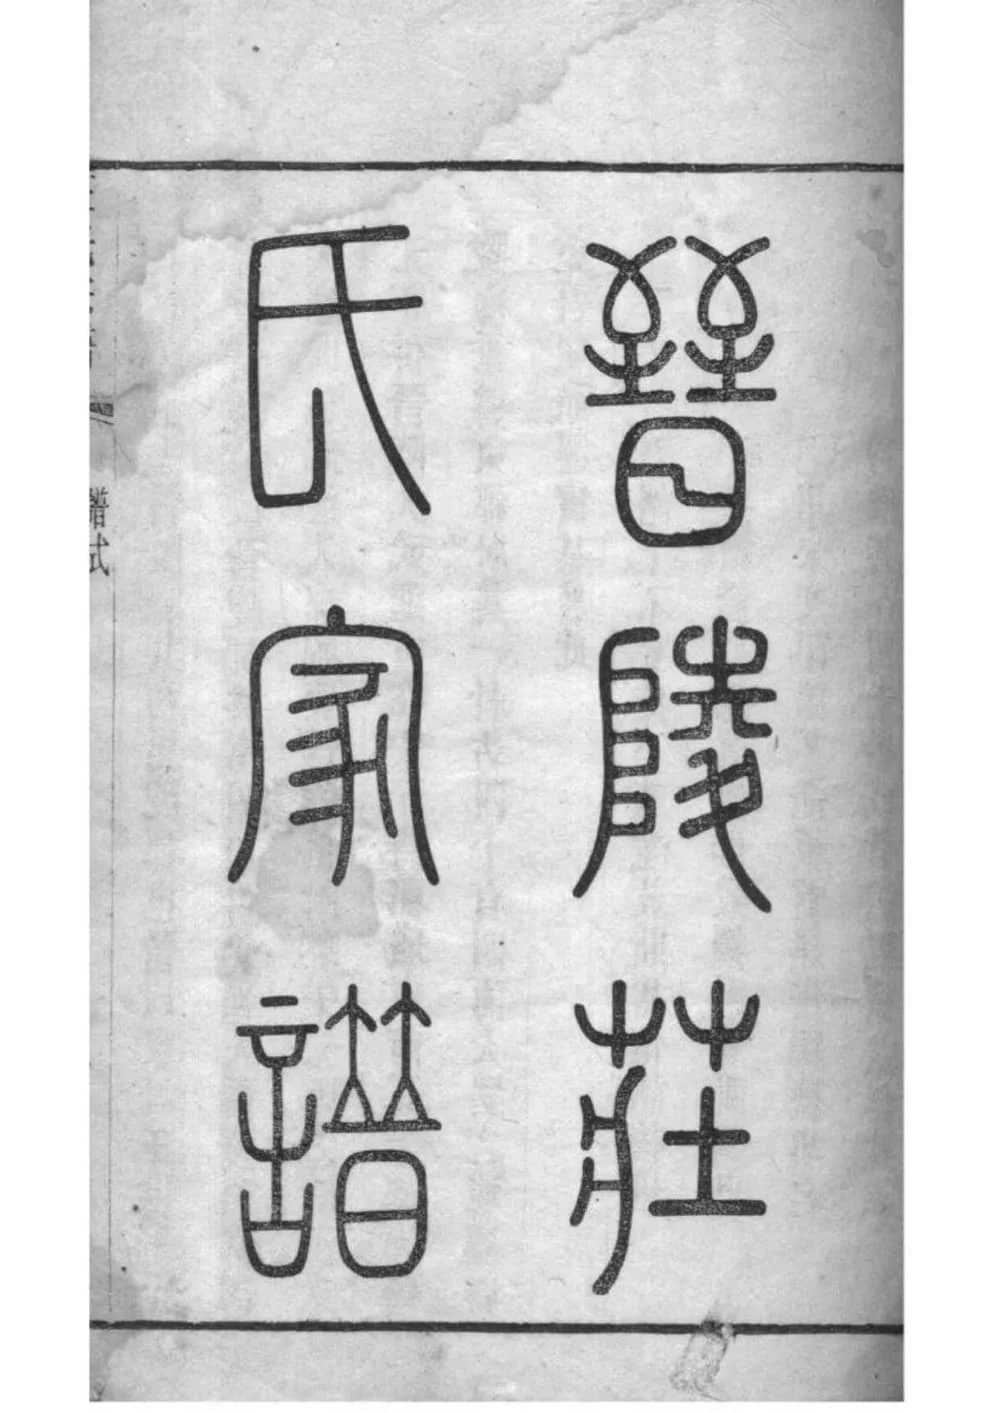 晉陵莊
氏家譜
譜式